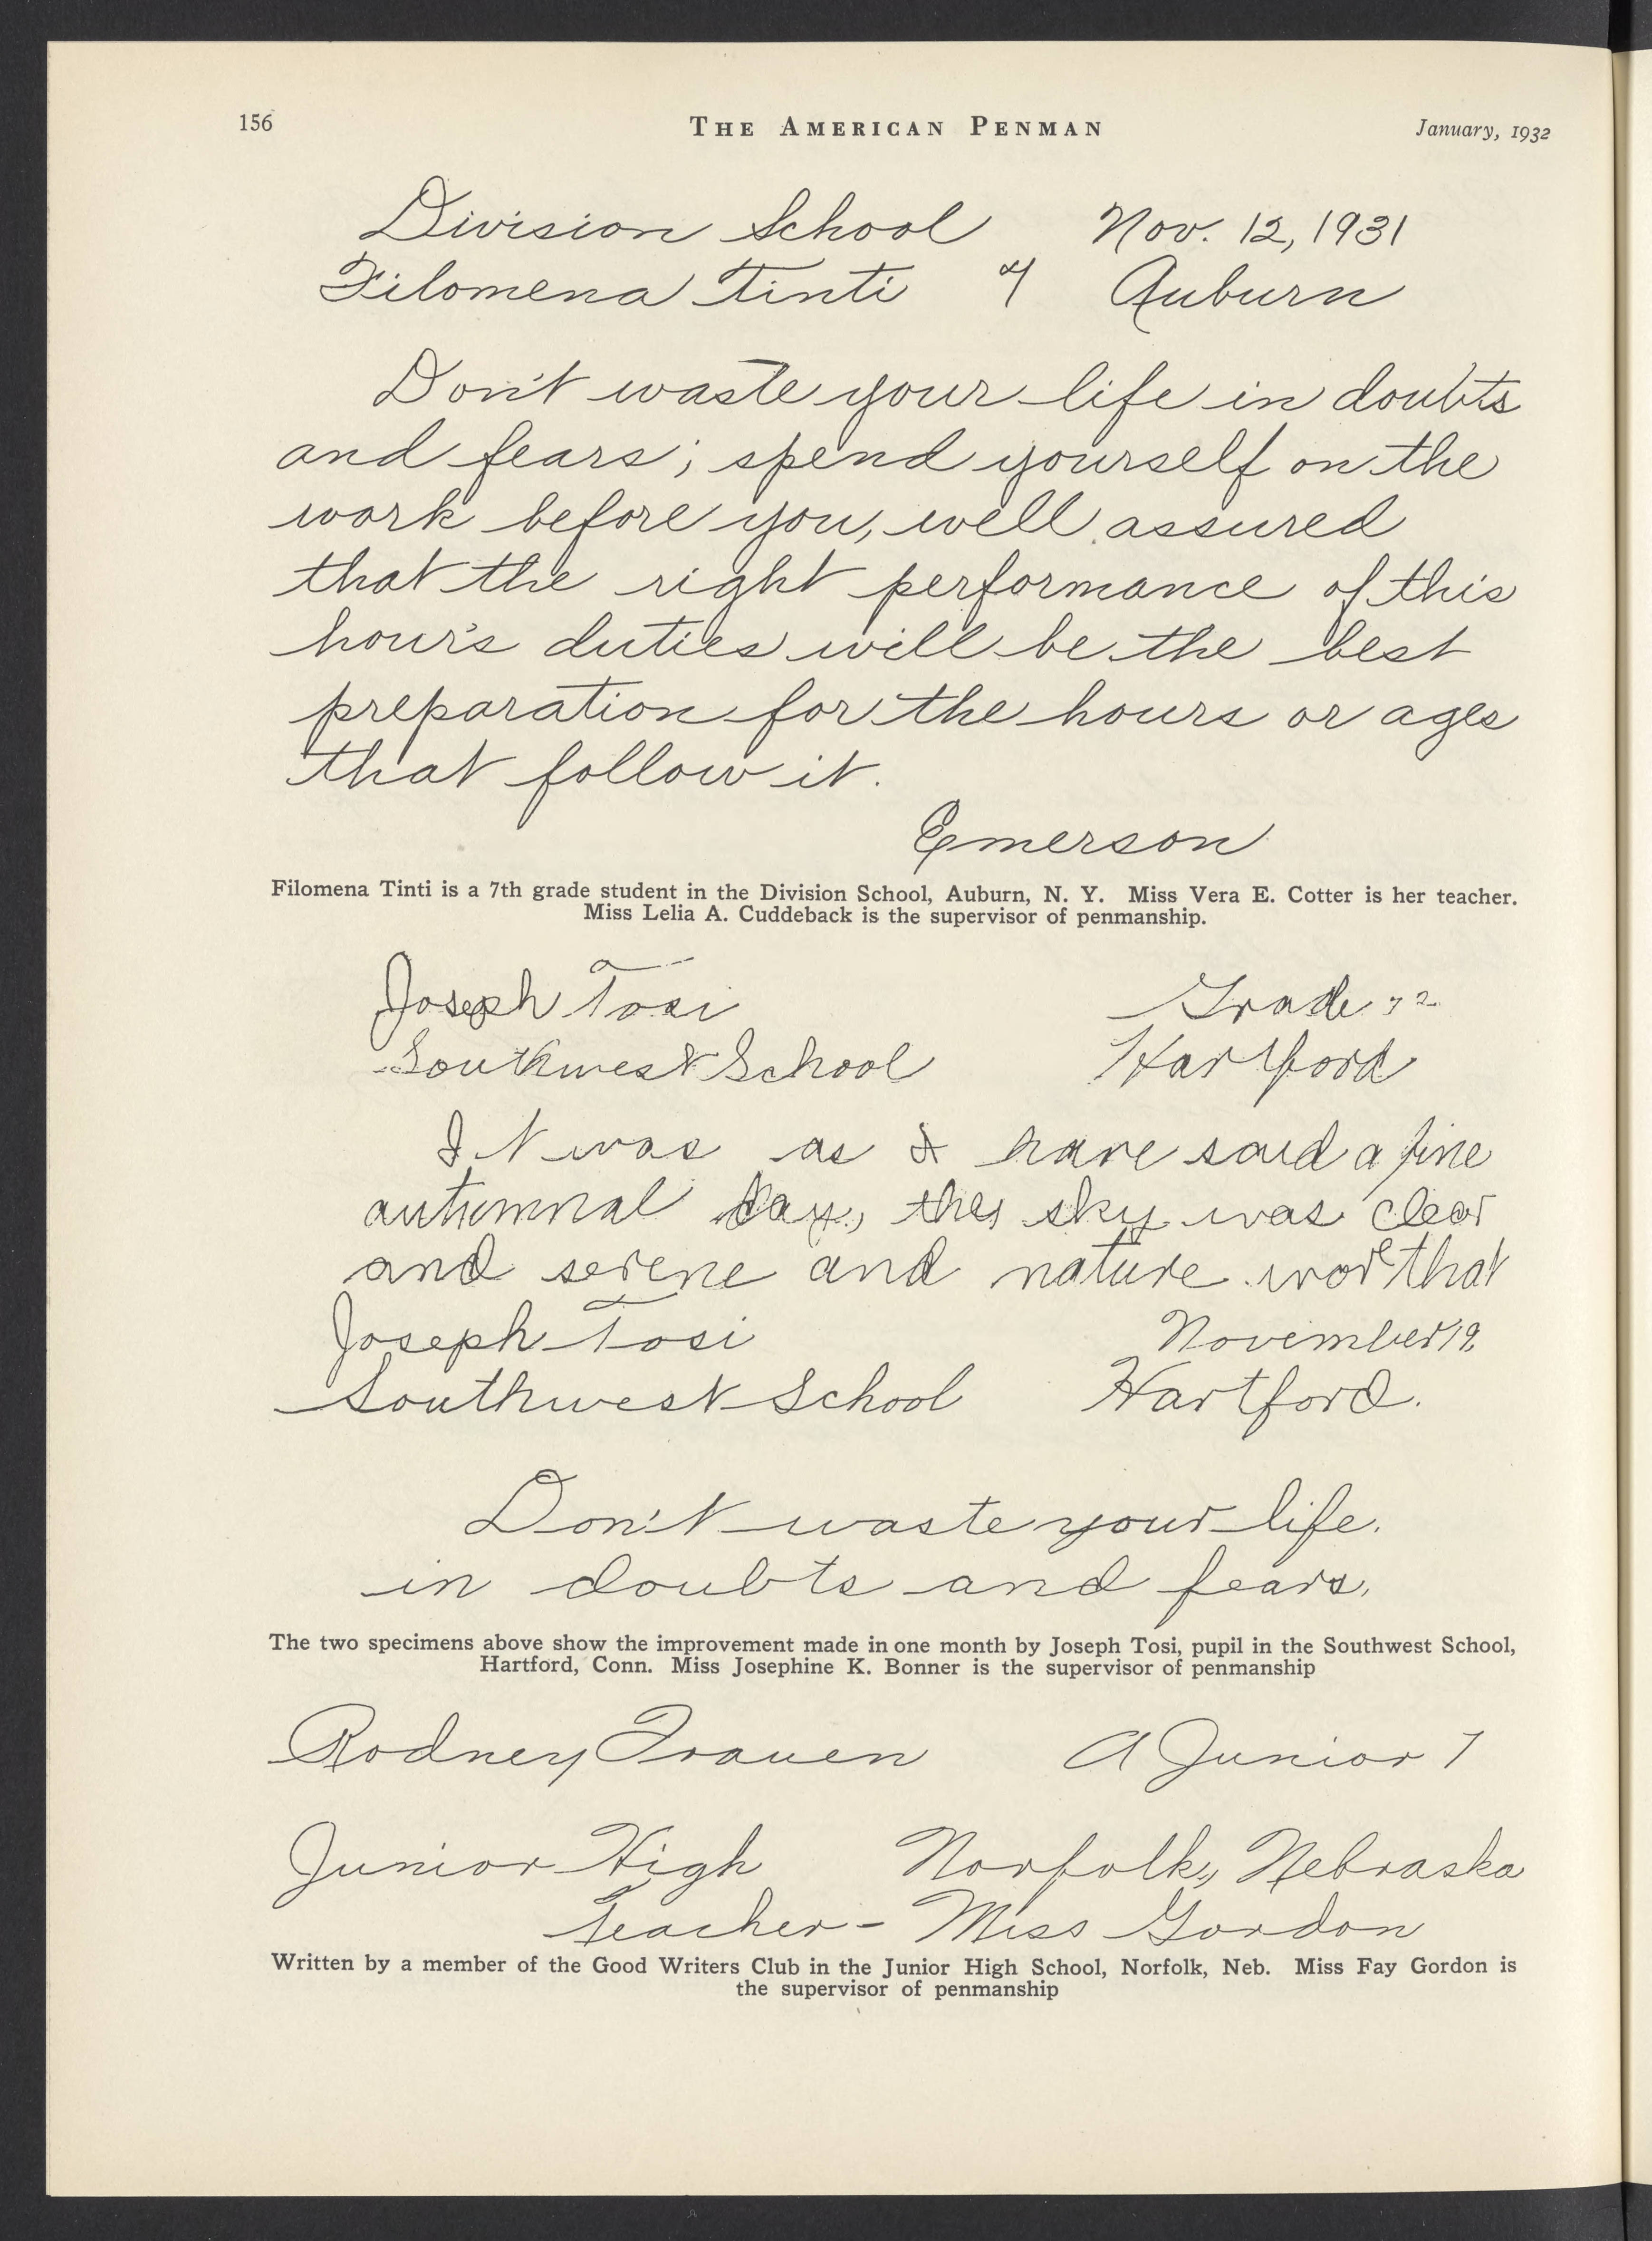 156
THE AMERICAN PENMAN
January, 1932
Division School Nov. 12, 1931
Filomena Tinti 7 Auburn
Don't waste your life in doubts
and fears; spend yourself on the
work before you, well assured
that the right performance of this
hour's duties will be the best
preparation for the hours or ages
that follow it.
Emerson
Filomena Tinti is a 7th grade student in the Division School, Auburn, N. Y. Miss Vera E. Cotter is her teacher.
Miss Lelia A. Cuddeback is the supervisor of penmanship.
Joseph Tosi Grade 72
Southwest School Hartford
It was as I have said a fine
autumnal day, the sky was clear
and serene and nature wore that
Joseph Tosi November 19.
Southwest School Hartford.
Don't waste your life.
in doubts and fears.
The two specimens above show the improvement made in one month by Joseph Tosi, pupil in the Southwest School,
Hartford, Conn. Miss Josephine K. Bonner is the supervisor of penmanship
Rodney Frauen A Junior 7
Junior High Norfolk, Nebraska
Teacher - Miss Gordon
Written by a member of the Good Writers Club in the Junior High School, Norfolk, Neb. Miss Fay Gordon is
the supervisor of penmanship